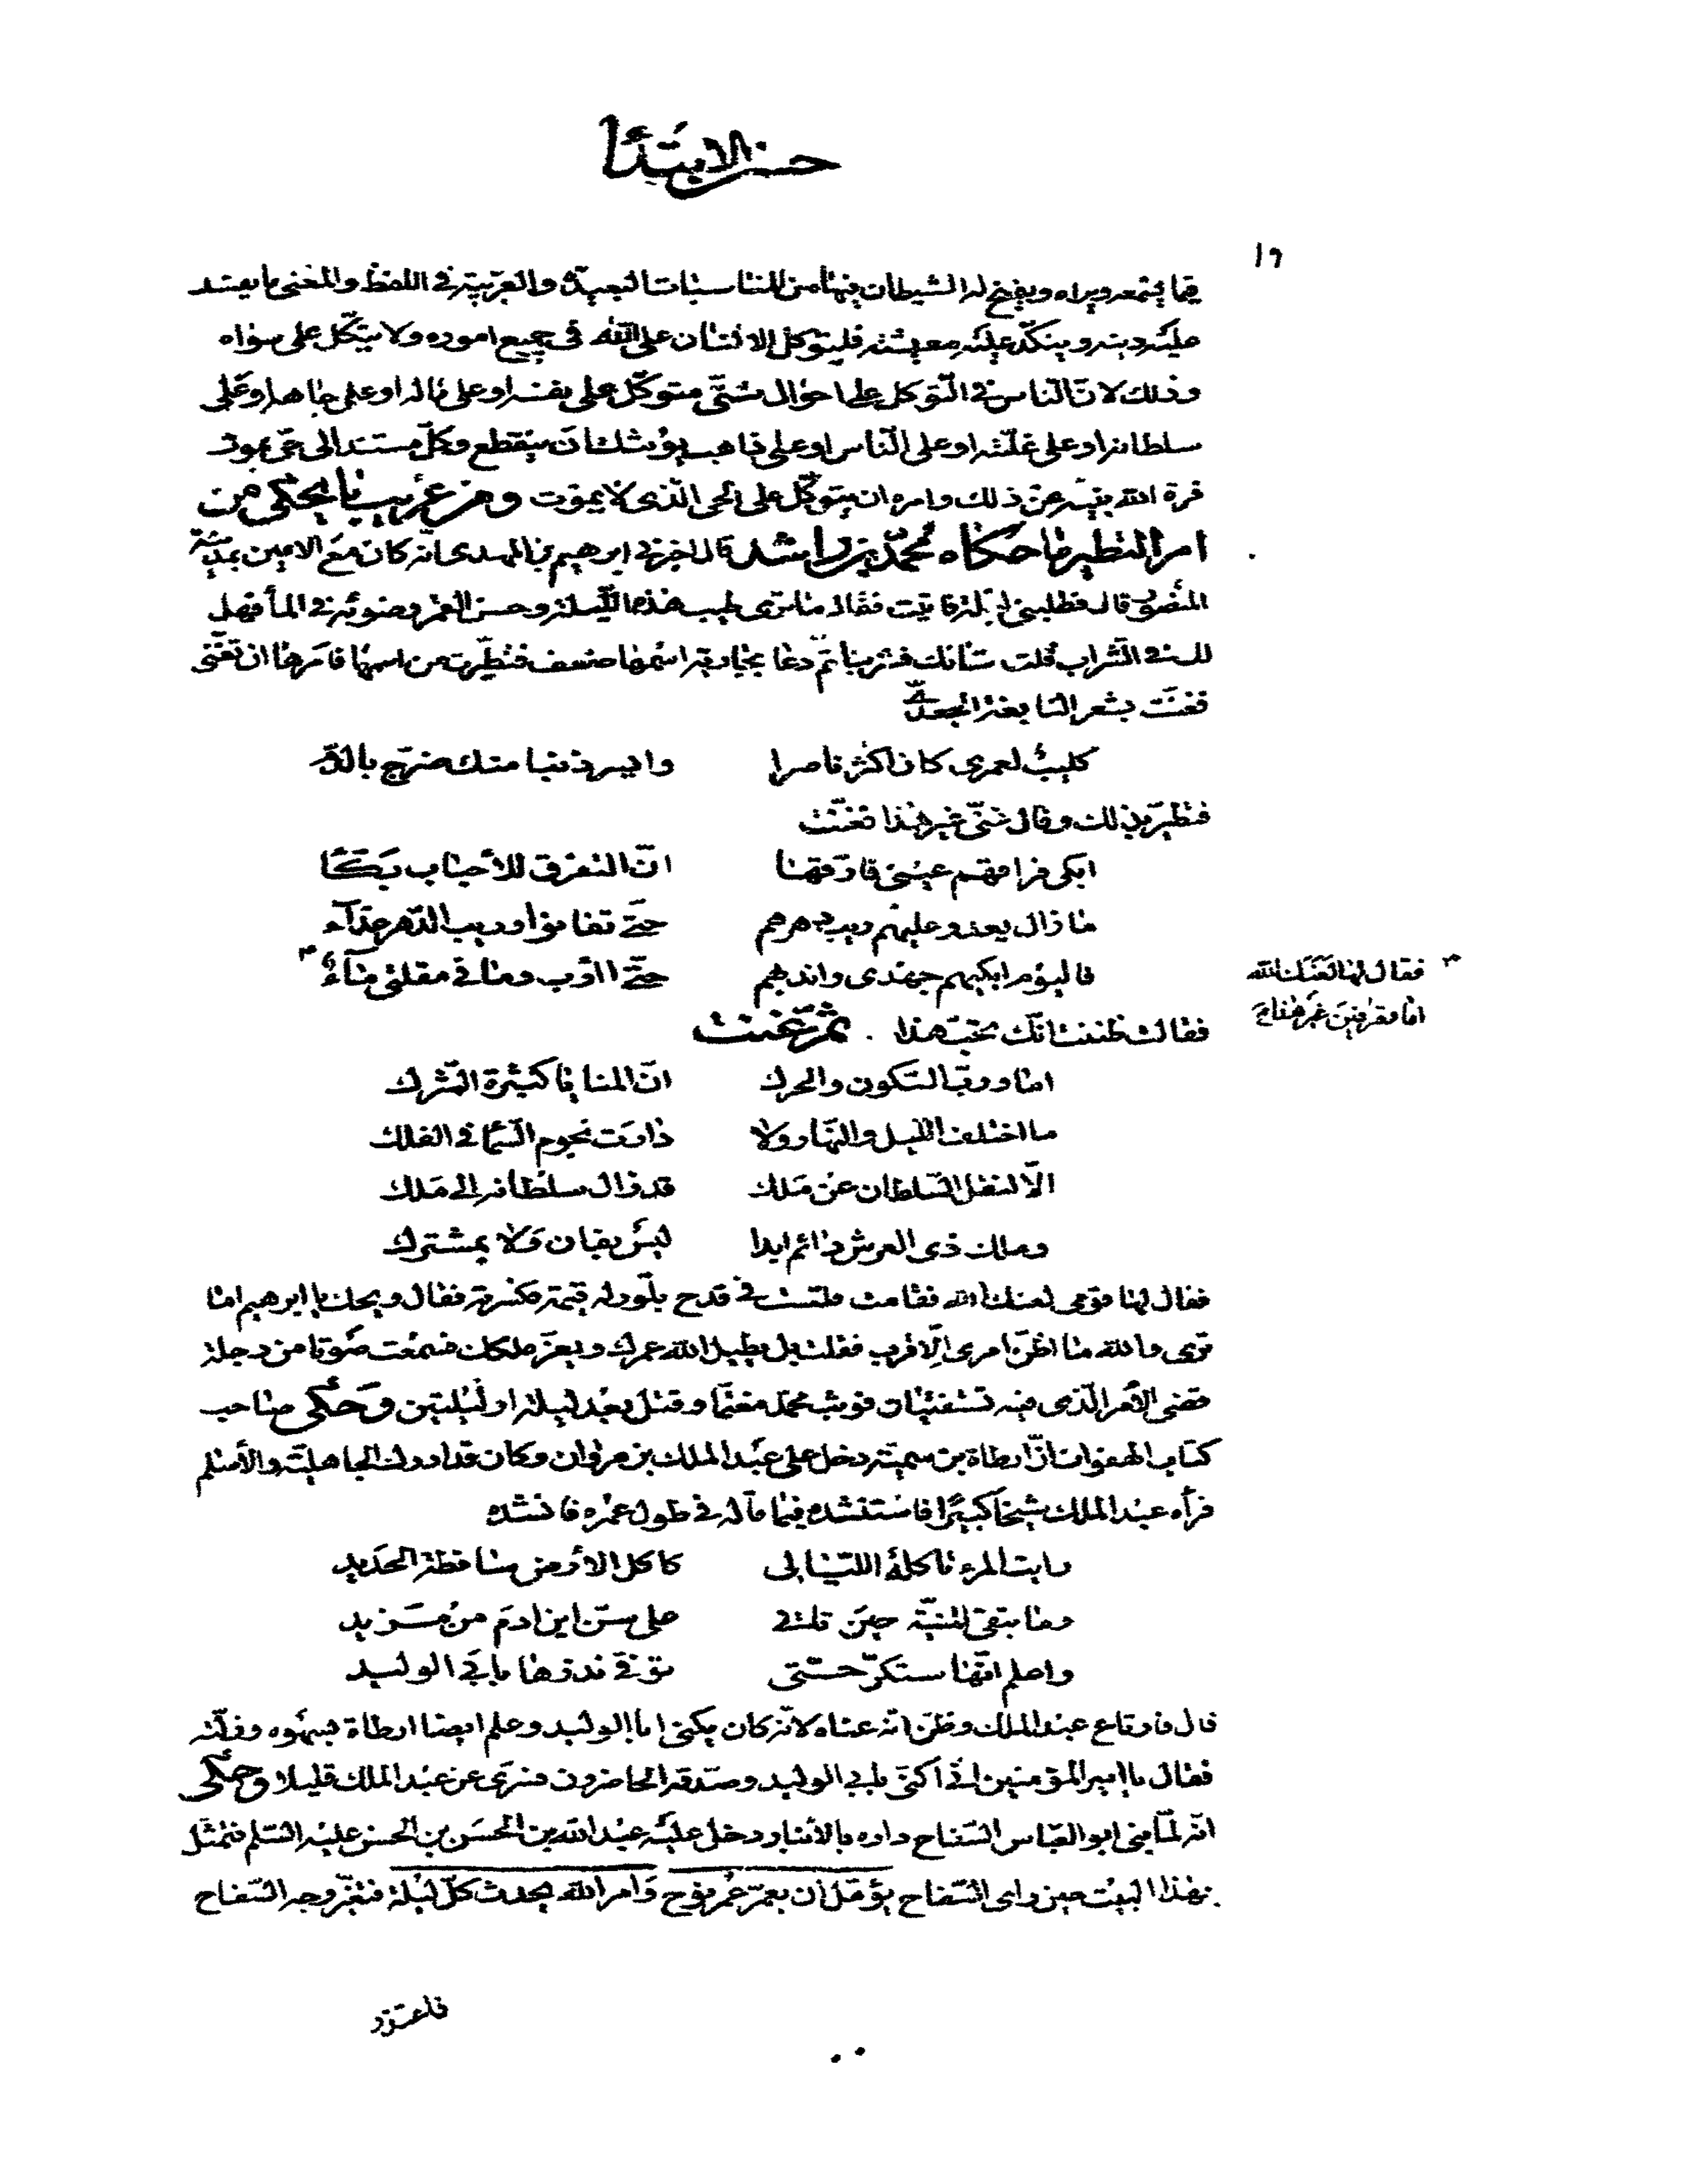 حسن الابتدأ
١٩
فيما يسمعه ويراه ويفتح له الشيطان فيها من المناسبات البعيدة والقريبة في اللفظ والمعنى ما يفسد
عليه دينه وينكد عليه معيشته فليتوكل الانسان على الله في جميع اموره ولا يتكل على سواه
وذلك لانّ الناس في التوكل على احوال شتّى متوكّل على نفسه او على ماله او على جاهه او على
سلطانه او على غلّته او على النّاس او على ذاهب يوشك ان ينقطع وكلّ مستند الى حيّ يموت
فنزه الله نبيّه عن ذلك وامره ان يتوكّل على الحي الّذى لا يموت ومن غريب ما يحكى من
امر التطير ما حكاه محمّد بن راشد قال اخبرني ابرهيم بن المهدى انّه كان مع الامين بمدينة
المنصور قال فطلبني ليلة فاتيت فقال ما ترى طيب هذه اللّيلة وحسن القمر وضوئه في المأ فهل
لك في الشّراب قلت شانك فشربنا ثمّ دعا بجارية اسمها ضعف فتطيّرت من اسمها فامرها ان تغنّى
فغنّت بشعر النابغة الجعدىّ
كليبٌ لعمرى كان اكثر ناصرا وايسر ذنبا منك ضرّج بالدّم
فتطيّر بذلك وقال غنّى غير هذا فغنّت
ابكى فراقهم عينى فارّقها انّ التفرق للأحباب بكّأ
ما زال يعدو عليهم ريب دهرهم حتّى تفانوا وريب الدّهر عدّآء
فاليوم ابكيهم جهدى واندبهم حتّى اؤب وما في مقلتي مآءُ
فقال لها لعنك الله
اما تعرفين غير هذا
فقالت ظننت انّك تحبّ هذا . ثم غنّت
اما وربّ السّكون والحرك انّ المنايا كثيرة الشّرك
ما اختلف اللّيل والنّهار ولا دارت نجوم السّما في الفلك
الّا لنقل السّلطان عن ملك قد زال سلطانه الى ملك
وملك ذى العرش دائم ابدا ليس بفان ولا بمشترك
فقال لها قومى لعنك الله فقامت فلقت في قدح بلّور له قيمة فكسرته فقال ويحك يا ابرهيم اما
ترى والله ما اظنّ امرى الّا قرب فقلت بل يطيل الله عمرك ويعزّ ملكك فسمعت صوتا من دجلة
قضى الأمر الّذى فيه تستفتيان فوثب محمّد مغتمّا وقتل بعد ليلة او ليلتين وحكى صاحب
كتاب الهفوات انّ ارطاة بن سميّة دخل على عبد الملك بن مروان وكان قد ادرك الجاهليّة والأسلم
فرأه عبد الملك شيخا كبيرا فاستنشده فيما قاله في طول عمره فانشده
رايت المرء تاكله اللّيالى كاكل الارض ساقطة الحديد
وما تبقى المنيّة حين تاتى على سنّ ابن ادم من مزيد
واعلم انّها ستكرّ حتّى توفى نذرها بابى الوليد
قال فارتاع عبد الملك وظنّ انّه عناه لانّه كان يكنى ابا الوليد وعلم ايضا ارطاة بسهوه وزلّته
فقال يا امير المؤمنين انّى اكنى بابى الوليد وصدّقه الحاضرون فسرى عن عبد الملك قليلا وحكى
انّه لمّا بنى ابو العبّاس السّفاح داره بالأنبار دخل عليه عبد الله بن الحسن بن الحسن عليه السّلم فتمثّل
بهذا البيت حين راى السّفاح يؤمّل ان يعمّر عمر نوح وامر الله يحدث كلّ ليلة فتغيّر وجه السّفاح
فاعتذر